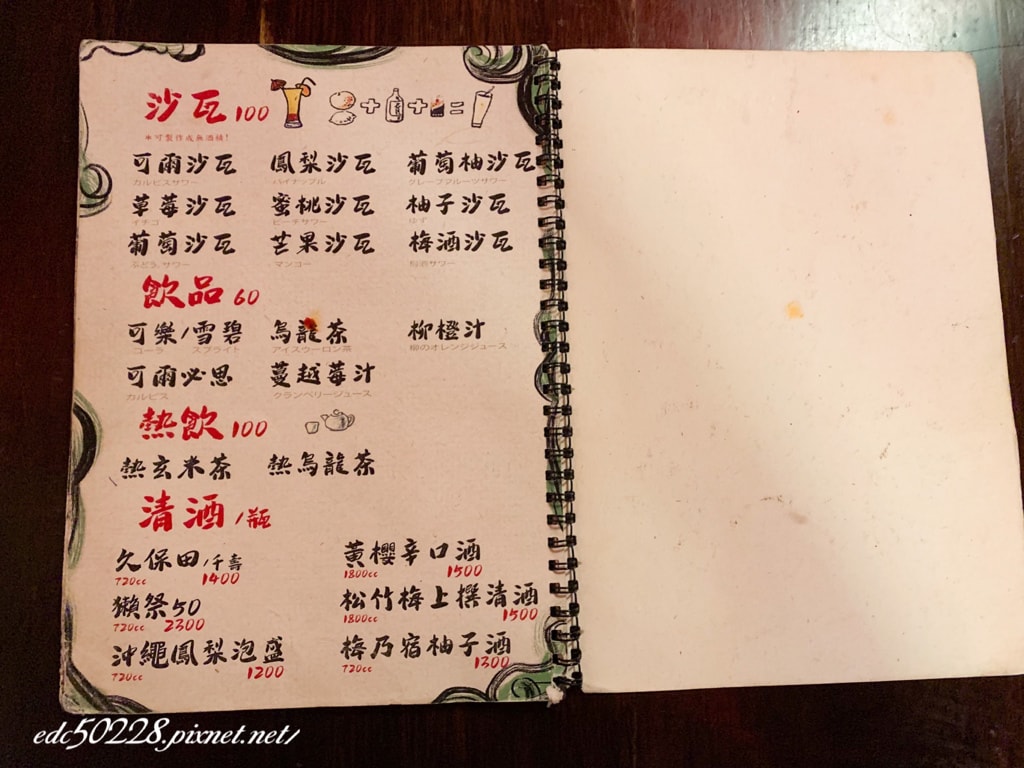 沙瓦 100
*可製作成無酒精!
可爾沙瓦 鳳梨沙瓦 葡萄柚沙瓦
カルピスサワー パイナップル グレープフルーツサワー
草莓沙瓦 蜜桃沙瓦 柚子沙瓦
イチゴ ピーチサワー ゆず
葡萄沙瓦 芒果沙瓦 梅酒沙瓦
ぶどうサワー マンゴー 梅酒サワー
飲品 60
可樂/雪碧 烏龍茶 柳橙汁
コーラ スプライト アイスウーロン茶 柳のオレンジジュース
可爾必思 蔓越莓汁
カルピス クランベリージュース
熱飲 100
熱玄米茶 熱烏龍茶
清酒/瓶
久保田/千壽 黃櫻辛口酒
720cc 1400 1800cc 1500
獺祭50 松竹梅上撰清酒
720cc 2300 1800cc 1500
沖繩鳳梨泡盛 梅乃宿柚子酒
720cc 1200 720cc 1300
edc50228.pixnet.net/